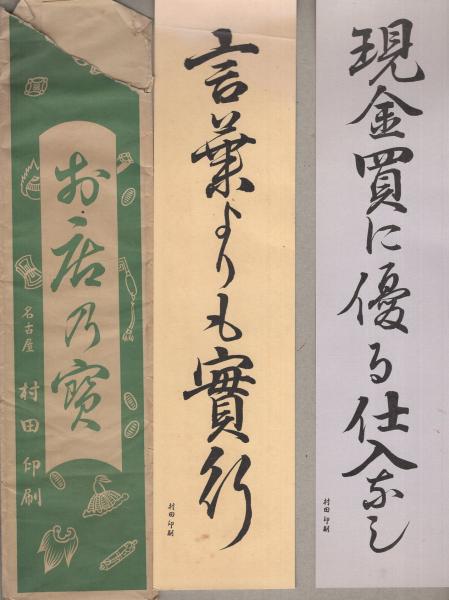 現金買に優る仕入なし
村田印刷
言葉よりも實行
村田印刷
お店乃寳
名古屋
村田印刷